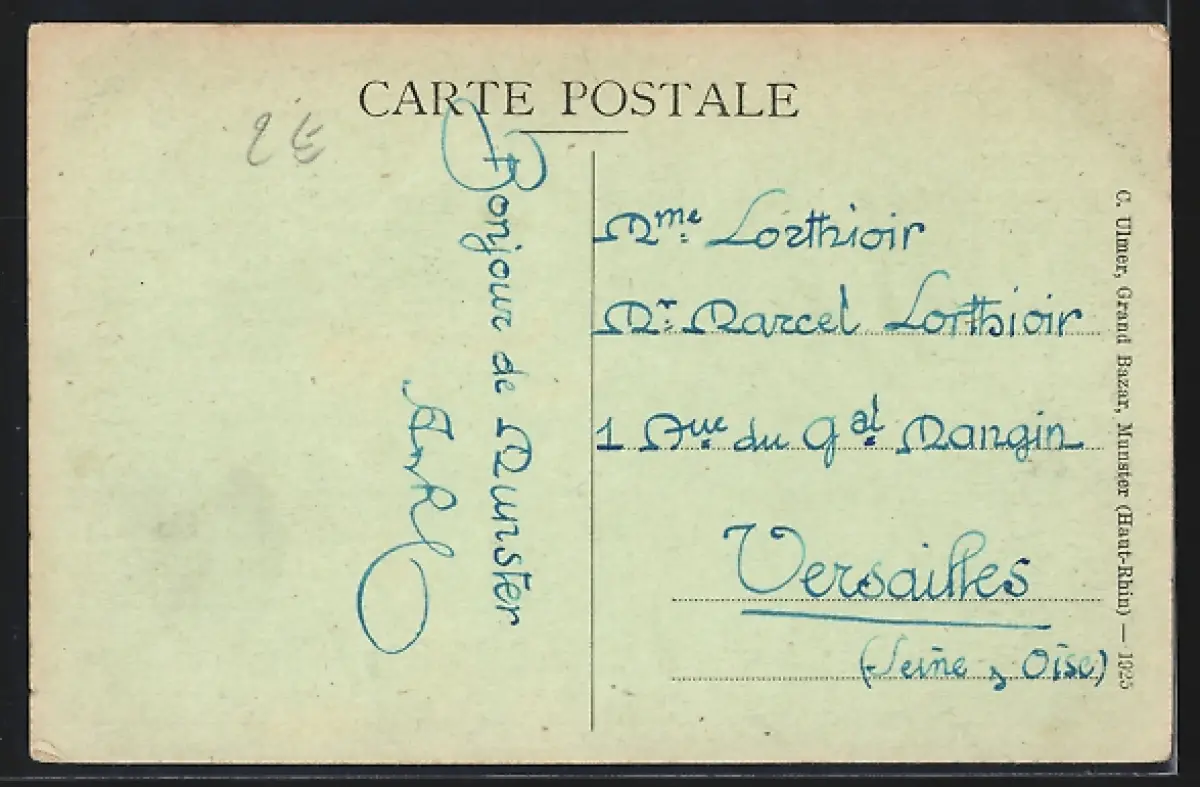 CARTE POSTALE
2 €
Bonjour de Munster
Mme Lorthioir
Mr Marcel Lorthioir
1 Rue du Gal Mangin
Versailles
(Seine & Oise)
C. Ulmer, Grand Bazar, Munster (Haut-Rhin) — 1925